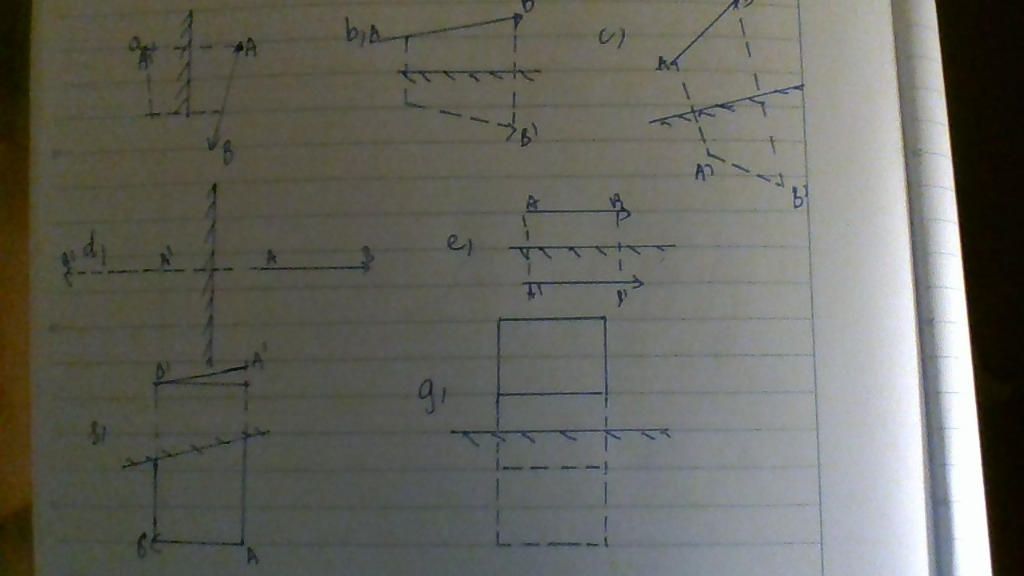 A' A
B
b, A B
B'
c)
A
A'
B'
d,
B' A' A B
e,
A B
A' B'
B' A'
B A
g,